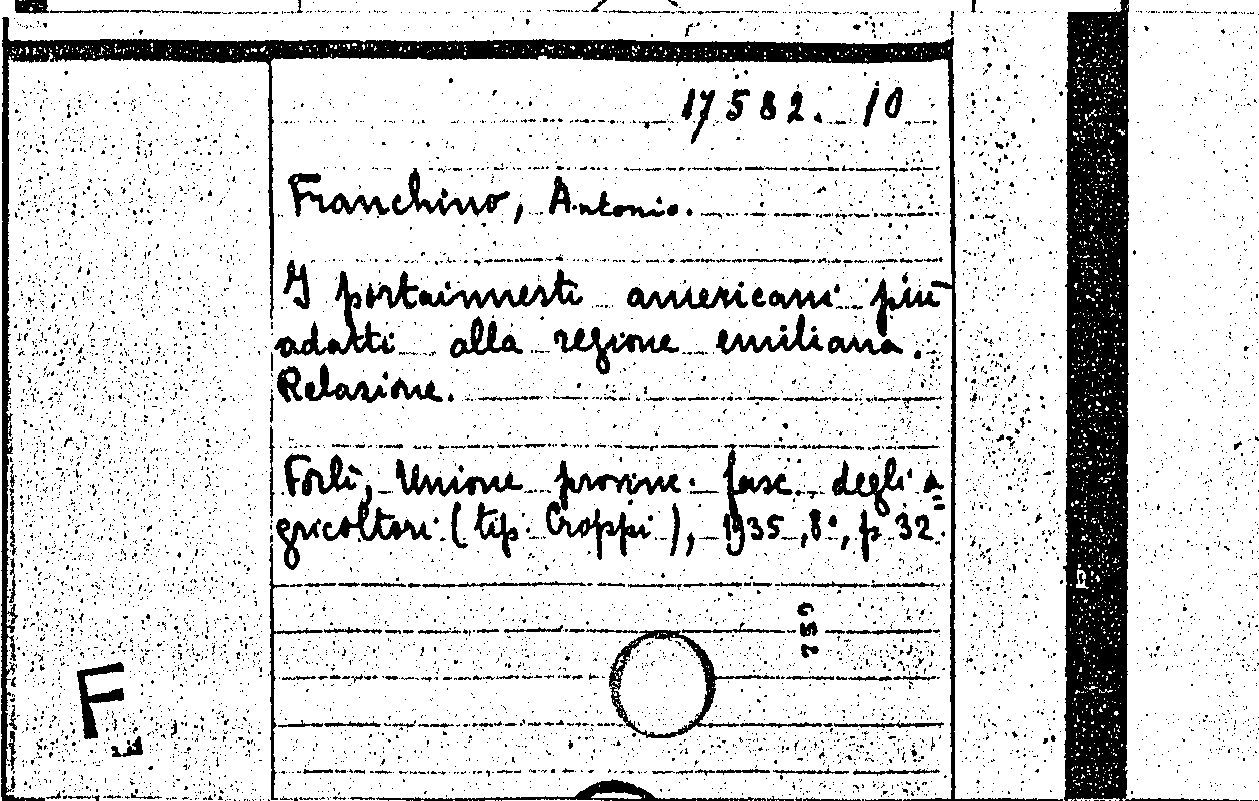 17582. 10
Franchino, Antonio.
I portainnesti americani più
adatti alla regione emiliana.
Relazione.
Forlì, Unione provinc. fasc. degli a=
gricoltori (tip. Croppi), 1935, 8°, p 32.
F